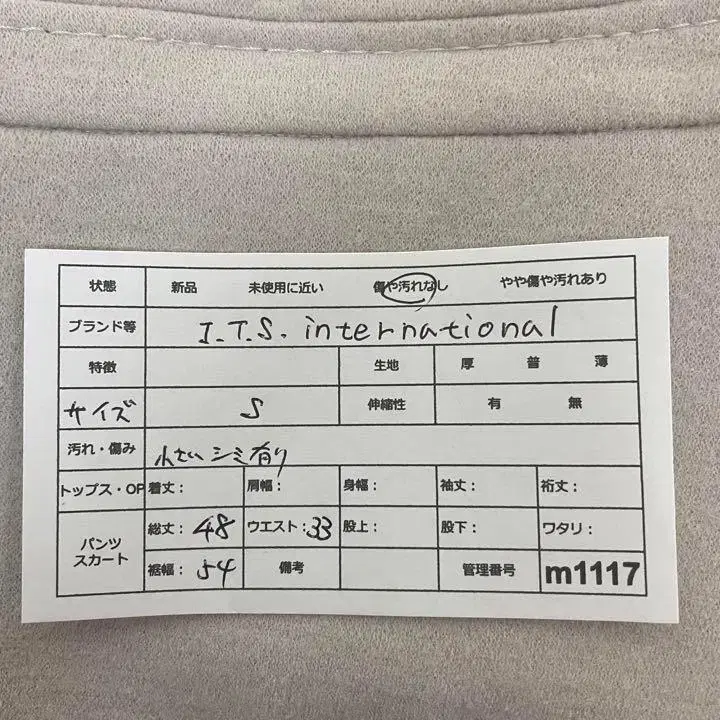 状態 新品 未使用に近い 傷や汚れなし やや傷や汚れあり
ブランド等 I.T.S. international
特徴 生地 厚 普 薄
サイズ S 伸縮性 有 無
汚れ・傷み 小さいシミ有り
トップス・OP 着丈： 肩幅： 身幅： 袖丈： 裄丈：
パンツ スカート 総丈：48 ウエスト：33 股上： 股下： ワタリ：
裾幅：54 備考 管理番号 m1117